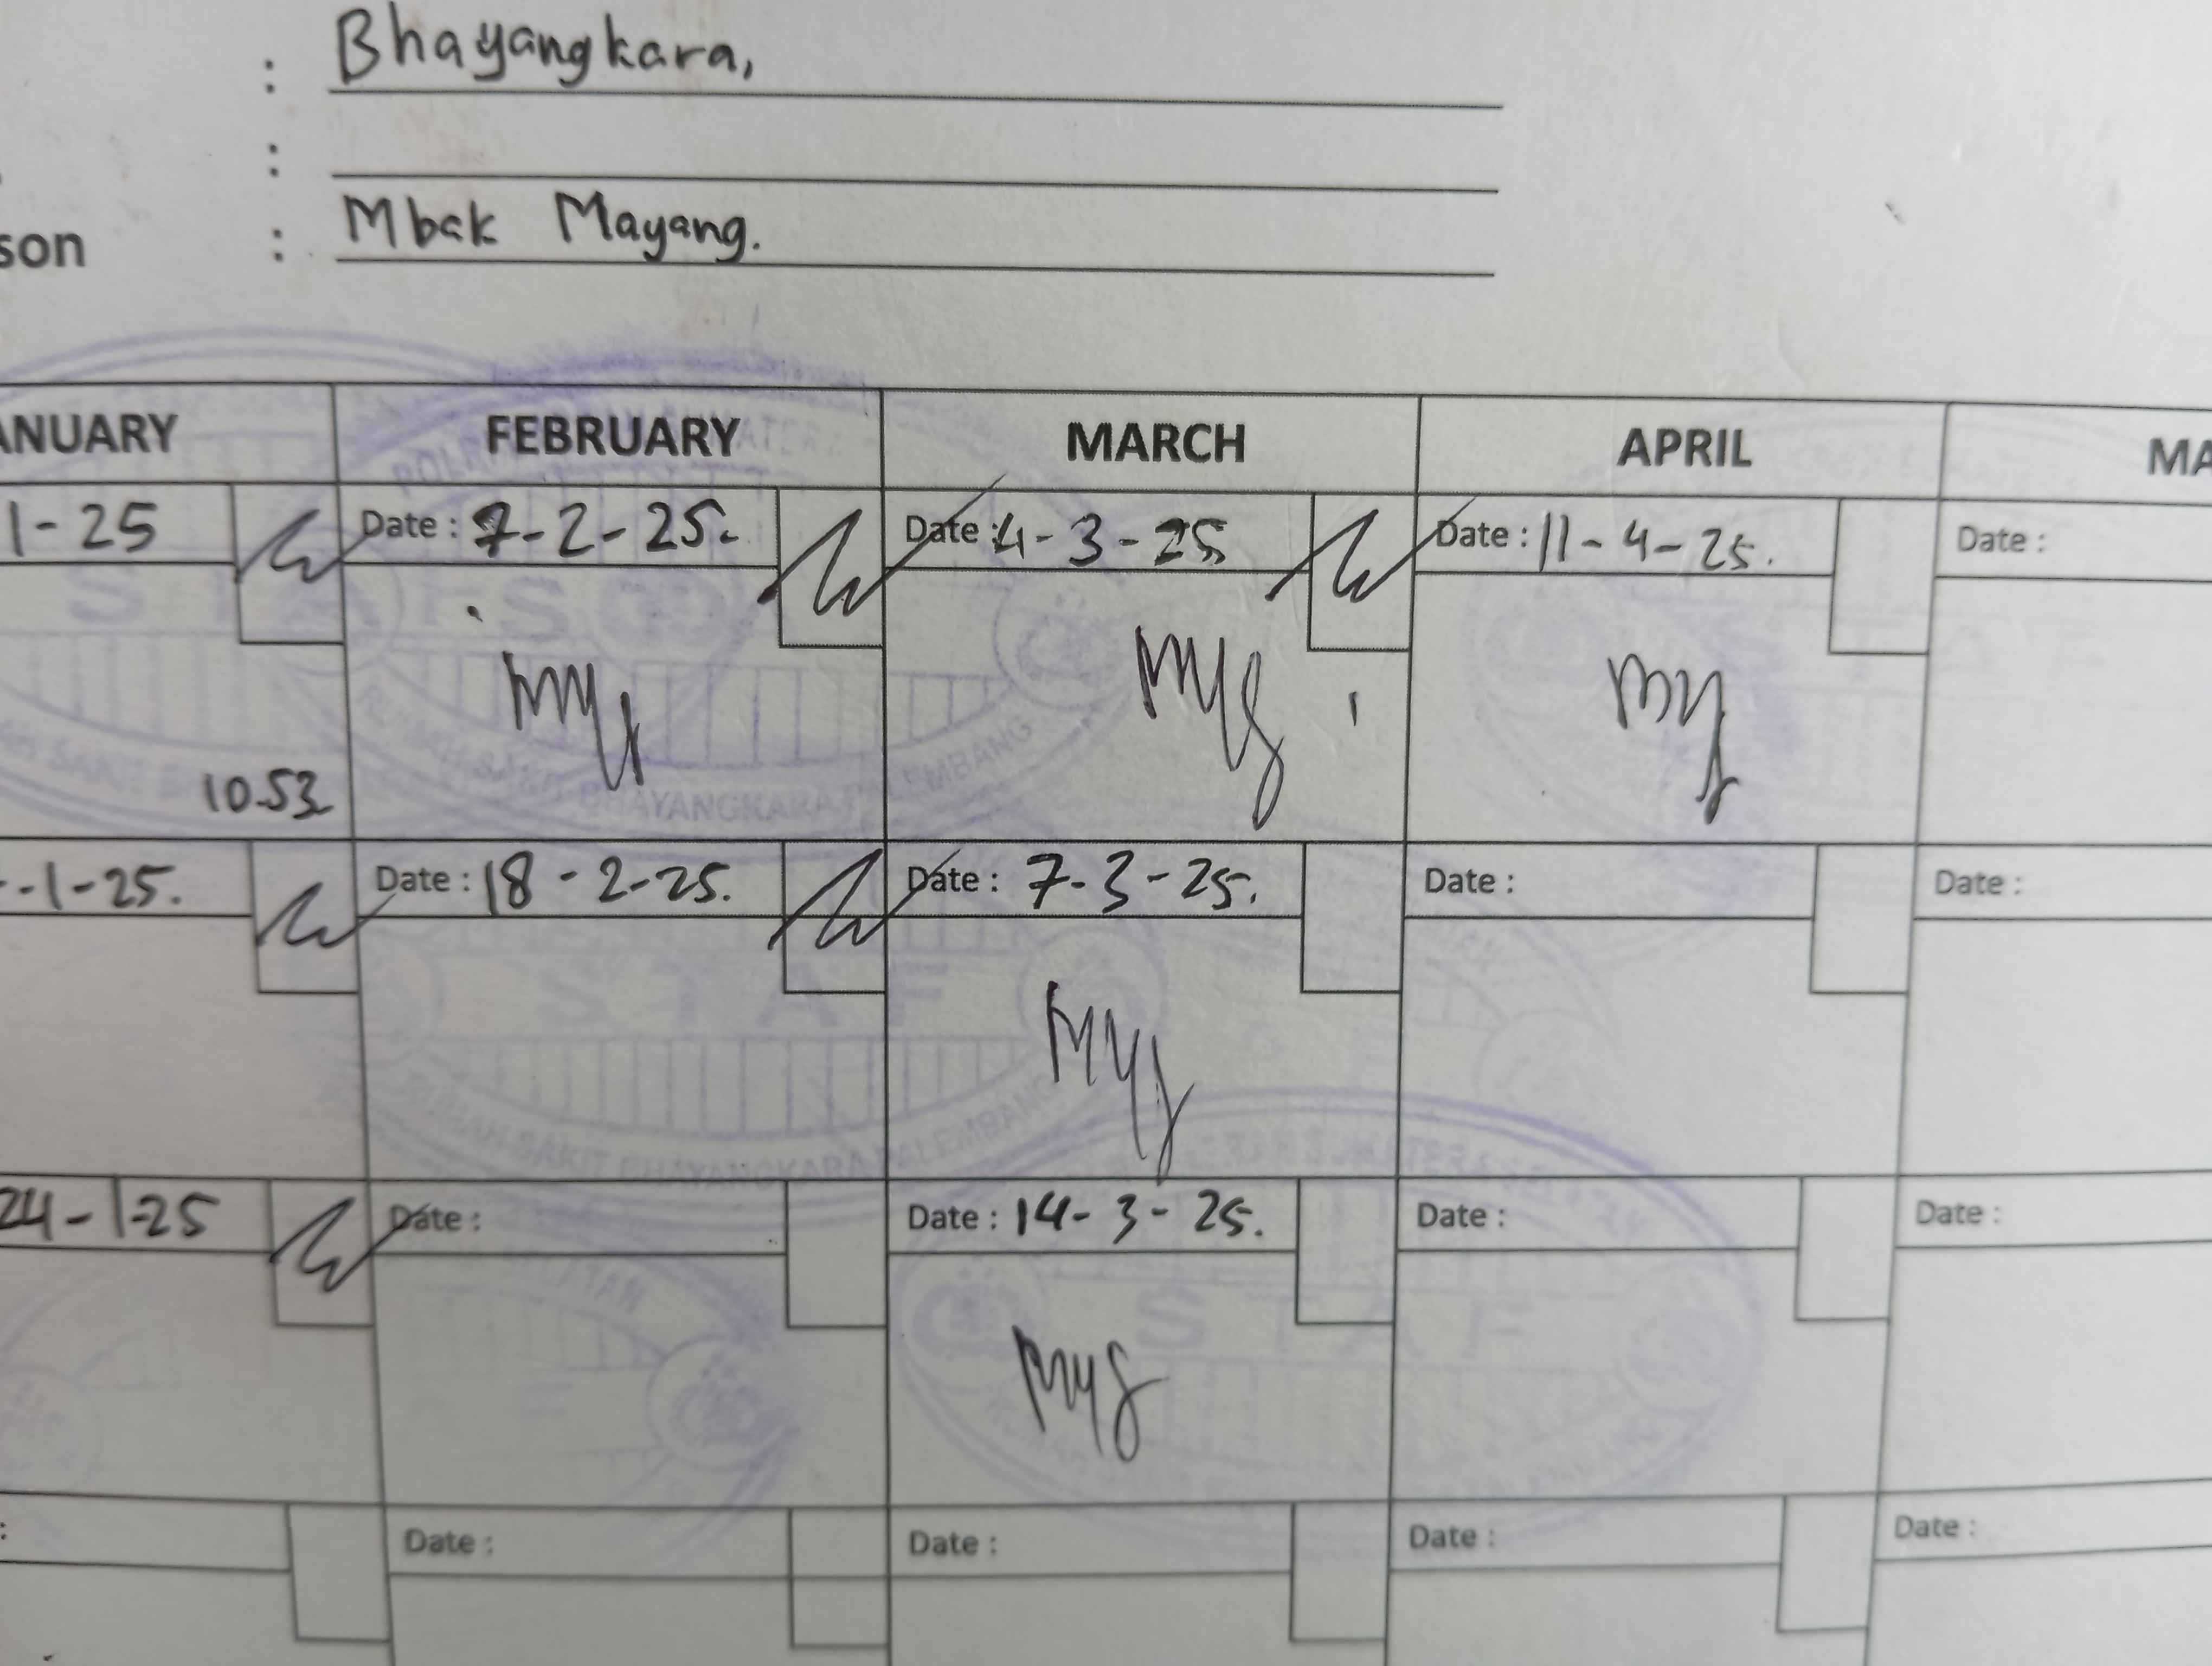 : Bhayangkara,
:
son : Mbak Mayang.
ANUARY FEBRUARY MARCH APRIL MA
1-25 Date : 7-2-25. Date : 4-3-25 Date : 11-4-25. Date :
10.53
-1-25. Date : 18-2-25. Date : 7-3-25. Date : Date :
STAF
RUMAH SAKIT BHAYANGKARA PALEMBANG
24-1-25 Date : Date : 14-3-25. Date : Date :
STAF
: Date : Date : Date : Date :